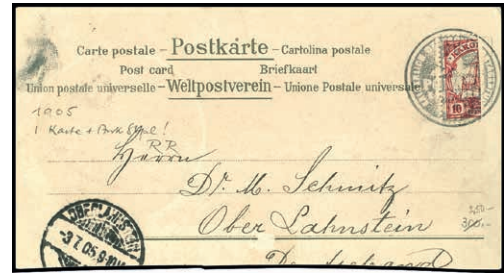 Carte postale – Postkarte – Cartolina postale
Post card Briefkaart
Union postale universelle – Weltpostverein – Unione Postale universale
1905
1 Karte + !
RR
Herrn
Dr. M. Schmitz
Ober Lahnstein
250.-
300.-
OBERLAHNSTEIN
-3.7.05.9-10V
10